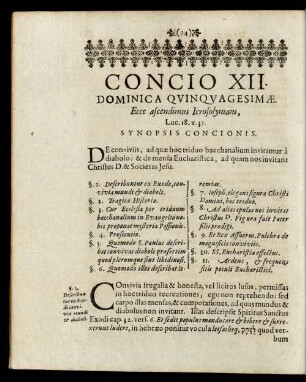 (24)
CONCIO XII.
DOMINICA QVINQVAGESIMÆ.
Ecce ascendimus Ierosolymam,
Luc. 18. v. 31.
SYNOPSIS CONCIONIS.
De conviviis, ad quæ hoc triduo bacchanalium invitamur à
diabolo: & de mensa Eucharistica, ad quam nos invitant
Christus D. & Societas Jesu.
§. 1. Describuntur ex Exodo, con-
vivia mundi & diaboli.
§. 2. Tragica Historia.
§. 3. Cur Ecclesia per triduum
bacchanalium in Evangelio no-
bis proponat mysteria Passionis.
§. 4. Prosecutio.
§. 5. Quomodo S. Paulus descri-
bat convivas diaboli præsertim
quod plerumque sint libidinosi.
§. 6. Quomodo illos describat Je-
remias.
§. 7. Joseph, elegans figura Christi
Domini, hoc triduo.
§. 8. Ad aliàs epulas nos invitat
Christus D. Figura fuit Pater
filii prodigi.
§. 9. Et Rex Assuerus. Pulchra de
magnificis conviviis.
§. 10. SS. Eucharistiæ effectus.
§. 11. Ardens, & frequens
sitis poculi Eucharistici.
§. 1.
Describun-
tur ex Exo-
do convi-
via mundi
& diaboli.
Convivia frugalia & honesta, vel licitos lusus, permissas
in hoc triduo recreationes, ego non reprehendo: sed
carpo illas mensas, & compotationes, ad quas mundus &
diabolus non invitant. Illas descripsit Spiritus Sanctus
Exodi cap 32. vers. 6. Et sedit populus manducare & bibere & surre-
xerunt ludere, in hebræo ponitur vocula letsacheg, quod ver-
bum